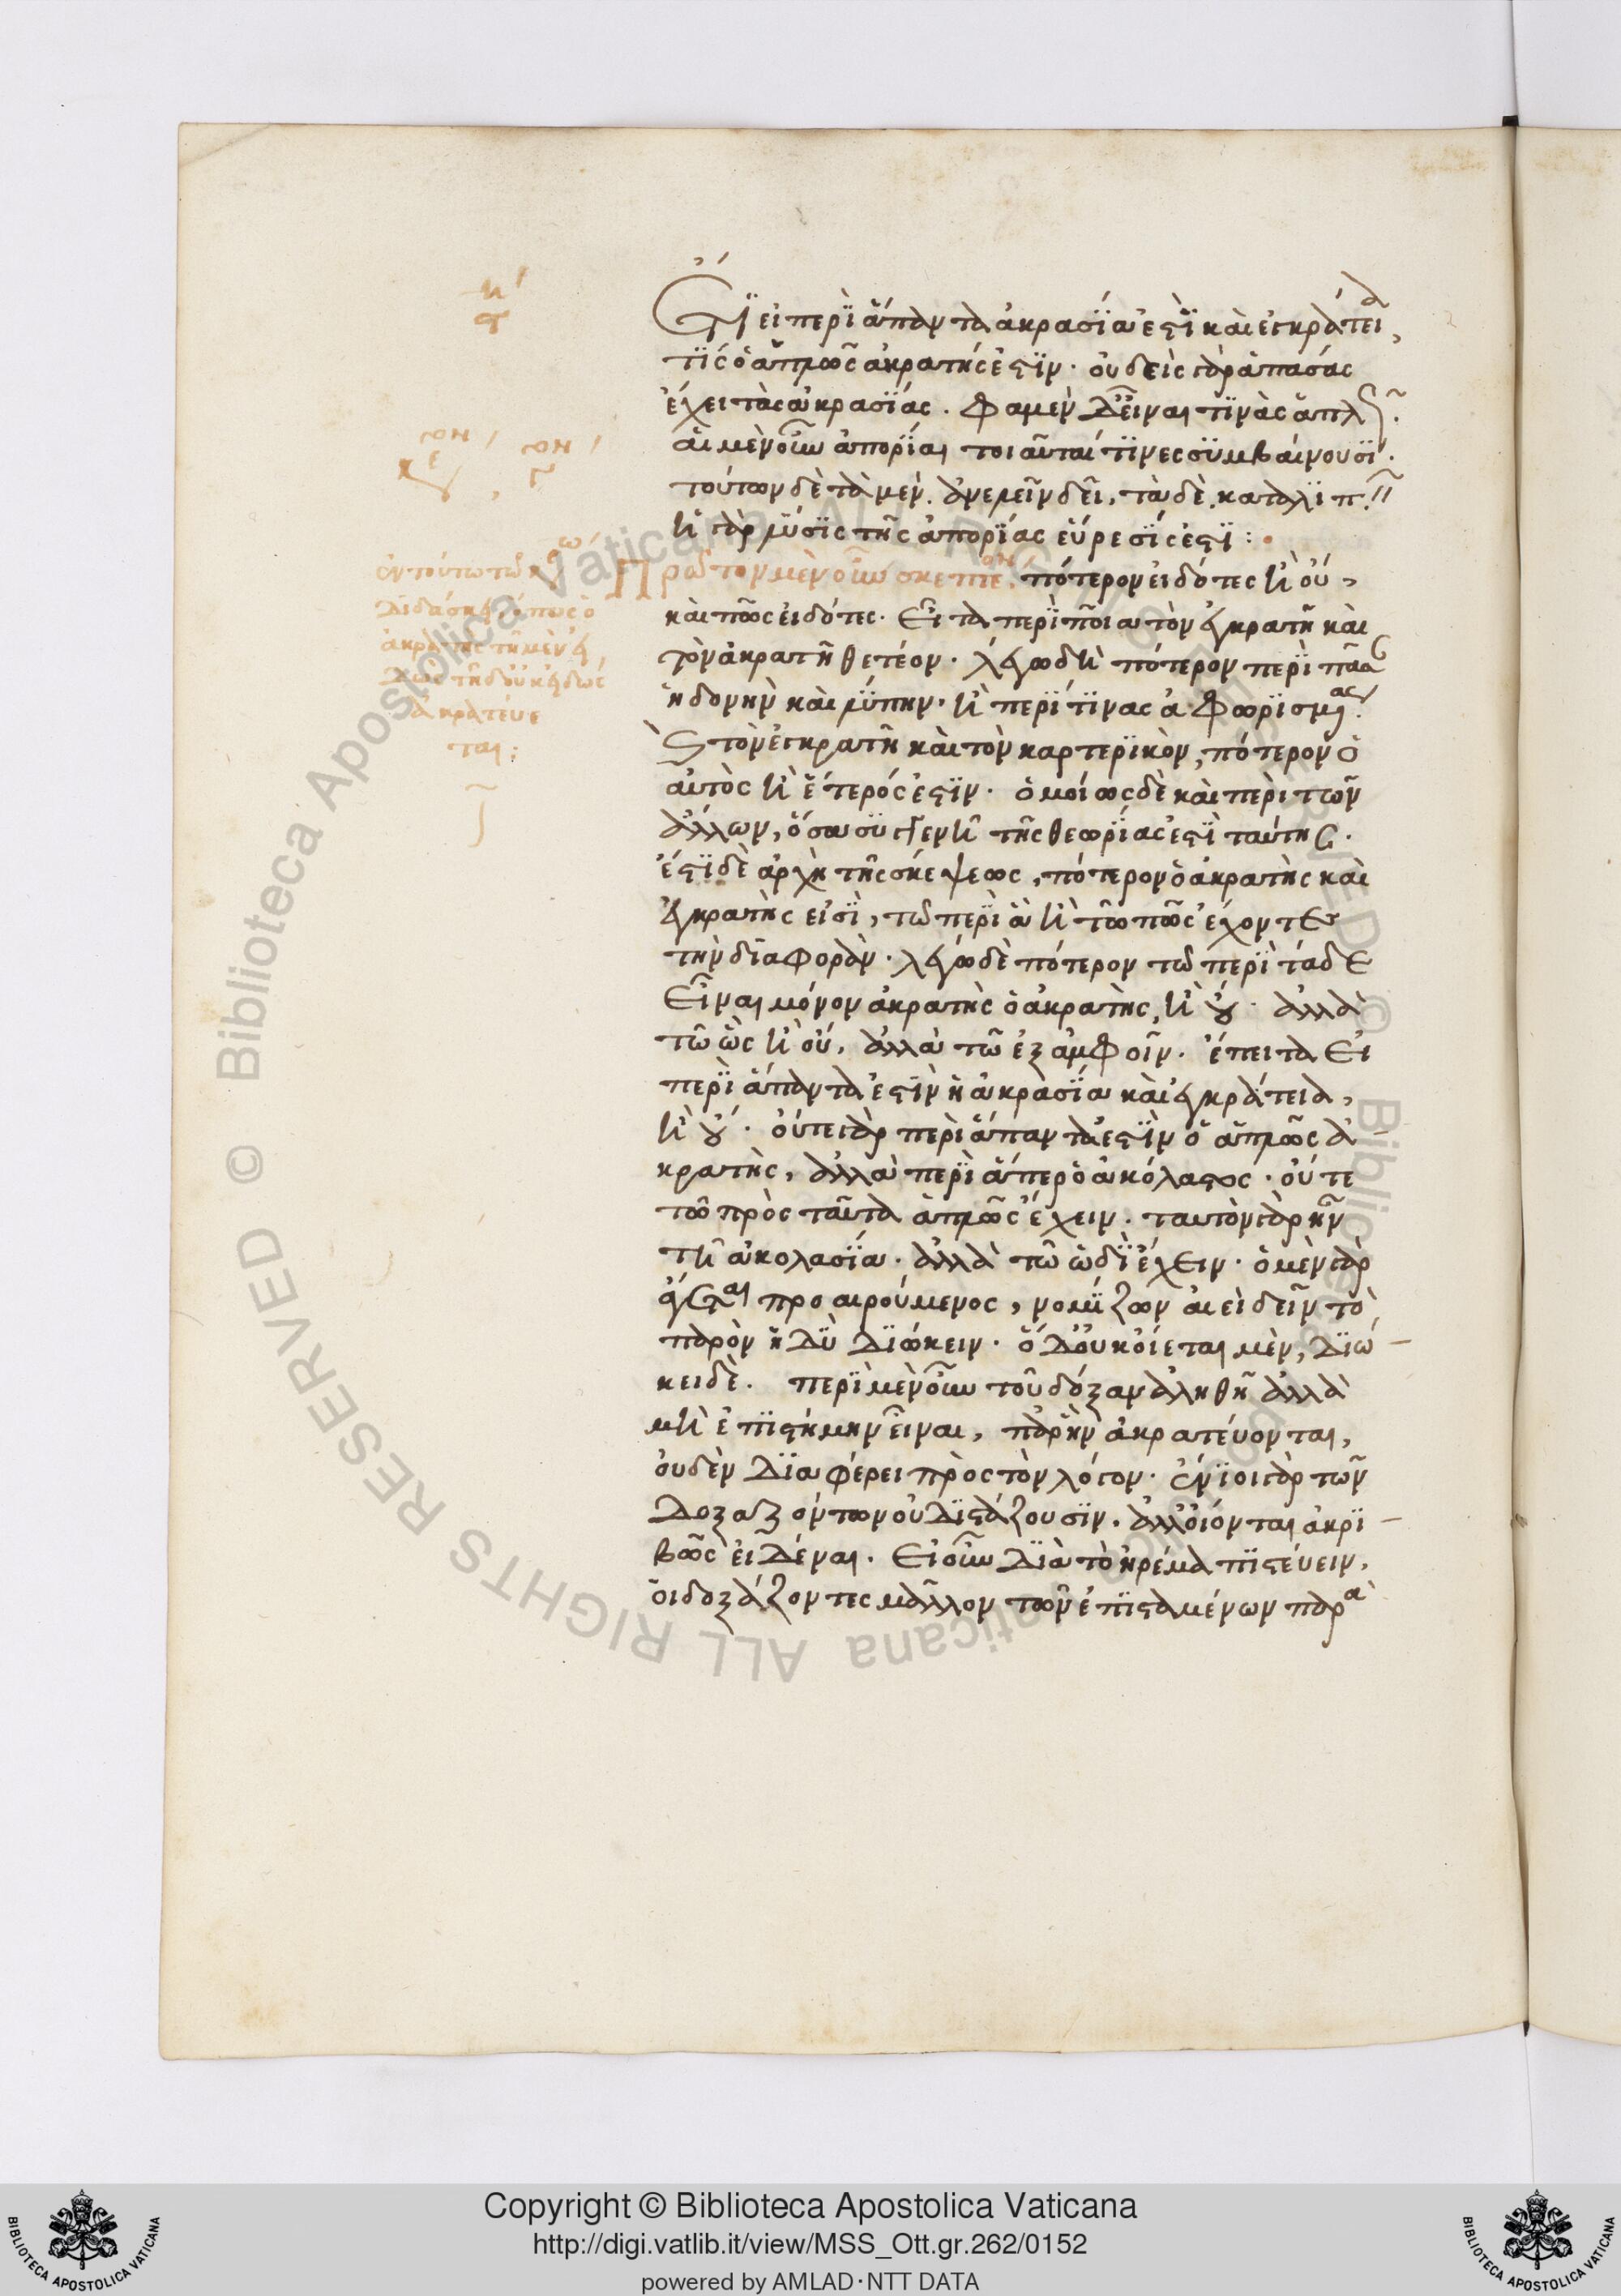 Ἔτι εἰ περὶ ἅπαντα ἀκρασία ἐστὶ καὶ ἐγκράτεια,
τίς ὁ ἁπλῶς ἀκρατής ἐστιν. οὐδεὶς γὰρ ἁπάσας
ἔχει τὰς ἀκρασίας. φαμὲν δ' εἶναι τινὰς ἁπλῶς.
αἱ μὲν οὖν ἀπορίαι τοιαῦταί τινες συμβαίνουσι.
τούτων δὲ τὰ μὲν ἀνελεῖν δεῖ, τὰ δὲ καταλιπεῖν
ἡ γὰρ λύσις τῆς ἀπορίας εὕρεσίς ἐστι:
Πρῶτον μὲν οὖν σκεπτέον πότερον εἰδότες ἢ οὔ,
καὶ πῶς εἰδότες. Εἶτα περὶ ποῖα τὸν ἐγκρατῆ καὶ
τὸν ἀκρατῆ θετέον. λέγω δὴ πότερον περὶ πᾶσαν
ἡδονὴν καὶ λύπην. ἢ περί τινας ἀφωρισμένας.
καὶ τὸν ἐγκρατῆ καὶ τὸν καρτερικὸν, πότερον ὁ
αὐτὸς ἢ ἕτερός ἐστιν. ὁμοίως δὲ καὶ περὶ τῶν
ἄλλων, ὅσα συγγενῆ τῆς θεωρίας ἐστὶ ταύτης.
ἔστι δὲ ἀρχὴ τῆς σκέψεως, πότερον ὁ ἀκρατὴς καὶ
ἐγκρατὴς εἰσὶ, τῷ περὶ ἃ ἢ τῷ πῶς ἔχοντες
τὴν διαφοράν. λέγω δὲ πότερον τῷ περὶ τάδε
Εἶναι μόνον ἀκρατὴς ὁ ἀκρατὴς, ἢ οὔ. ἀλλὰ
τῷ ὡς ἢ οὔ, ἀλλὰ τῷ ἐξ ἀμφοῖν. ἔπειτα Εἰ
περὶ ἅπαντα ἐστὶν ἡ ἀκρασία καὶ ἐγκράτεια,
ἢ οὔ. οὔτε γὰρ περὶ ἅπαντα ἐστὶν ὁ ἁπλῶς ἀ-
κρατὴς, ἀλλὰ περὶ ἅπερ ὁ ἀκόλαστος. οὔτε
τῷ πρὸς ταῦτα ἁπλῶς ἔχειν. ταυτὸν γὰρ ἦν
τῇ ἀκολασία. ἀλλὰ τῷ ὡδὶ ἔχειν. ὁ μὲν γὰρ
ἄγεται προαιρούμενος, νομίζων ἀεὶ δεῖν τὸ
παρὸν ἡδὺ διώκειν. ὁ δ' οὐκ οἴεται μὲν, διώ-
κει δὲ. περὶ μὲν οὖν τοῦ δόξαν ἀληθῆ ἀλλὰ
μὴ ἐπιστήμην εἶναι, παρ' ἣν ἀκρατεύονται,
οὐδὲν διαφέρει πρὸς τὸν λόγον. ἔνιοι γὰρ τῶν
δοξαζόντων οὐ διστάζουσιν. ἀλλ' οἴονται ἀκρι-
βῶς εἰδέναι. Εἰ οὖν διὰ τὸ ἠρέμα πιστεύειν,
οἱ δοξάζοντες μᾶλλον τῶν ἐπισταμένων παρὰ
ἐν τούτω τῶ
διδάσκει ὅπως ὁ
ἀκρατὴς πῆ μὲν εἰ
δὼς πῆ δ' οὐκ εἰδὼς
ἀκρατεύε
ται:
Copyright © Biblioteca Apostolica Vaticana
http://digi.vatlib.it/view/MSS_Ott.gr.262/0152
powered by AMLAD·NTT DATA
BIBLIOTECA APOSTOLICA VATICANA
BIBLIOTECA APOSTOLICA VATICANA
© Biblioteca Apostolica Vaticana ALL RIGHTS RESERVED